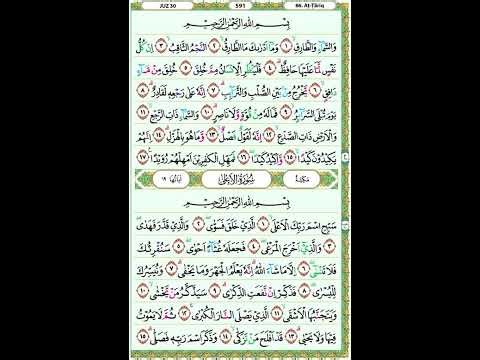 JUZ 30 591 86. At-Tariq
بِسْمِ اللّٰهِ الرَّحْمٰنِ الرَّحِيْمِ
وَالسَّمَاۤءِ وَالطَّارِقِۙ ١ وَمَآ اَدْرٰىكَ مَا الطَّارِقُۙ ٢ النَّجْمُ الثَّاقِبُۙ ٣ اِنْ كُلُّ
نَفْسٍ لَّمَّا عَلَيْهَا حَافِظٌۗ ٤ فَلْيَنْظُرِ الْاِنْسَانُ مِمَّ خُلِقَ ٥ خُلِقَ مِنْ مَّاۤءٍ
دَافِقٍۙ ٦ يَّخْرُجُ مِنْۢ بَيْنِ الصُّلْبِ وَالتَّرَاۤىِٕبِۗ ٧ اِنَّهٗ عَلٰى رَجْعِهٖ لَقَادِرٌۗ ٨
يَوْمَ تُبْلَى السَّرَاۤىِٕرُۙ ٩ فَمَا لَهٗ مِنْ قُوَّةٍ وَّلَا نَاصِرٍۗ ١٠ وَالسَّمَاۤءِ ذَاتِ الرَّجْعِۙ ١١
وَالْاَرْضِ ذَاتِ الصَّدْعِۙ ١٢ اِنَّهٗ لَقَوْلٌ فَصْلٌۙ ١٣ وَّمَا هُوَ بِالْهَزْلِۗ ١٤ اِنَّهُمْ
يَكِيْدُوْنَ كَيْدًاۙ ١٥ وَّاَكِيْدُ كَيْدًاۖ ١٦ فَمَهِّلِ الْكٰفِرِيْنَ اَمْهِلْهُمْ رُوَيْدًا ١٧
مَكِّيَّة سُوْرَةُ الْاَعْلٰى اٰيَاتُهَا ١٩
بِسْمِ اللّٰهِ الرَّحْمٰنِ الرَّحِيْمِ
سَبِّحِ اسْمَ رَبِّكَ الْاَعْلَىۙ ١ الَّذِيْ خَلَقَ فَسَوّٰىۖ ٢ وَالَّذِيْ قَدَّرَ فَهَدٰىۖ
٣ وَالَّذِيْٓ اَخْرَجَ الْمَرْعٰىۖ ٤ فَجَعَلَهٗ غُثَاۤءً اَحْوٰىۖ ٥ سَنُقْرِئُكَ
فَلَا تَنْسٰىٓۙ ٦ اِلَّا مَا شَاۤءَ اللّٰهُۗ اِنَّهٗ يَعْلَمُ الْجَهْرَ وَمَا يَخْفٰىۗ ٧ وَنُيَسِّرُكَ
لِلْيُسْرٰىۖ ٨ فَذَكِّرْ اِنْ نَّفَعَتِ الذِّكْرٰىۗ ٩ سَيَذَّكَّرُ مَنْ يَّخْشٰىۙ ١٠
وَيَتَجَنَّبُهَا الْاَشْقَىۙ ١١ الَّذِيْ يَصْلَى النَّارَ الْكُبْرٰىۚ ١٢ ثُمَّ لَا يَمُوْتُ
فِيْهَا وَلَا يَحْيٰىۗ ١٣ قَدْ اَفْلَحَ مَنْ تَزَكّٰىۙ ١٤ وَذَكَرَ اسْمَ رَبِّهٖ فَصَلّٰىۗ ١٥